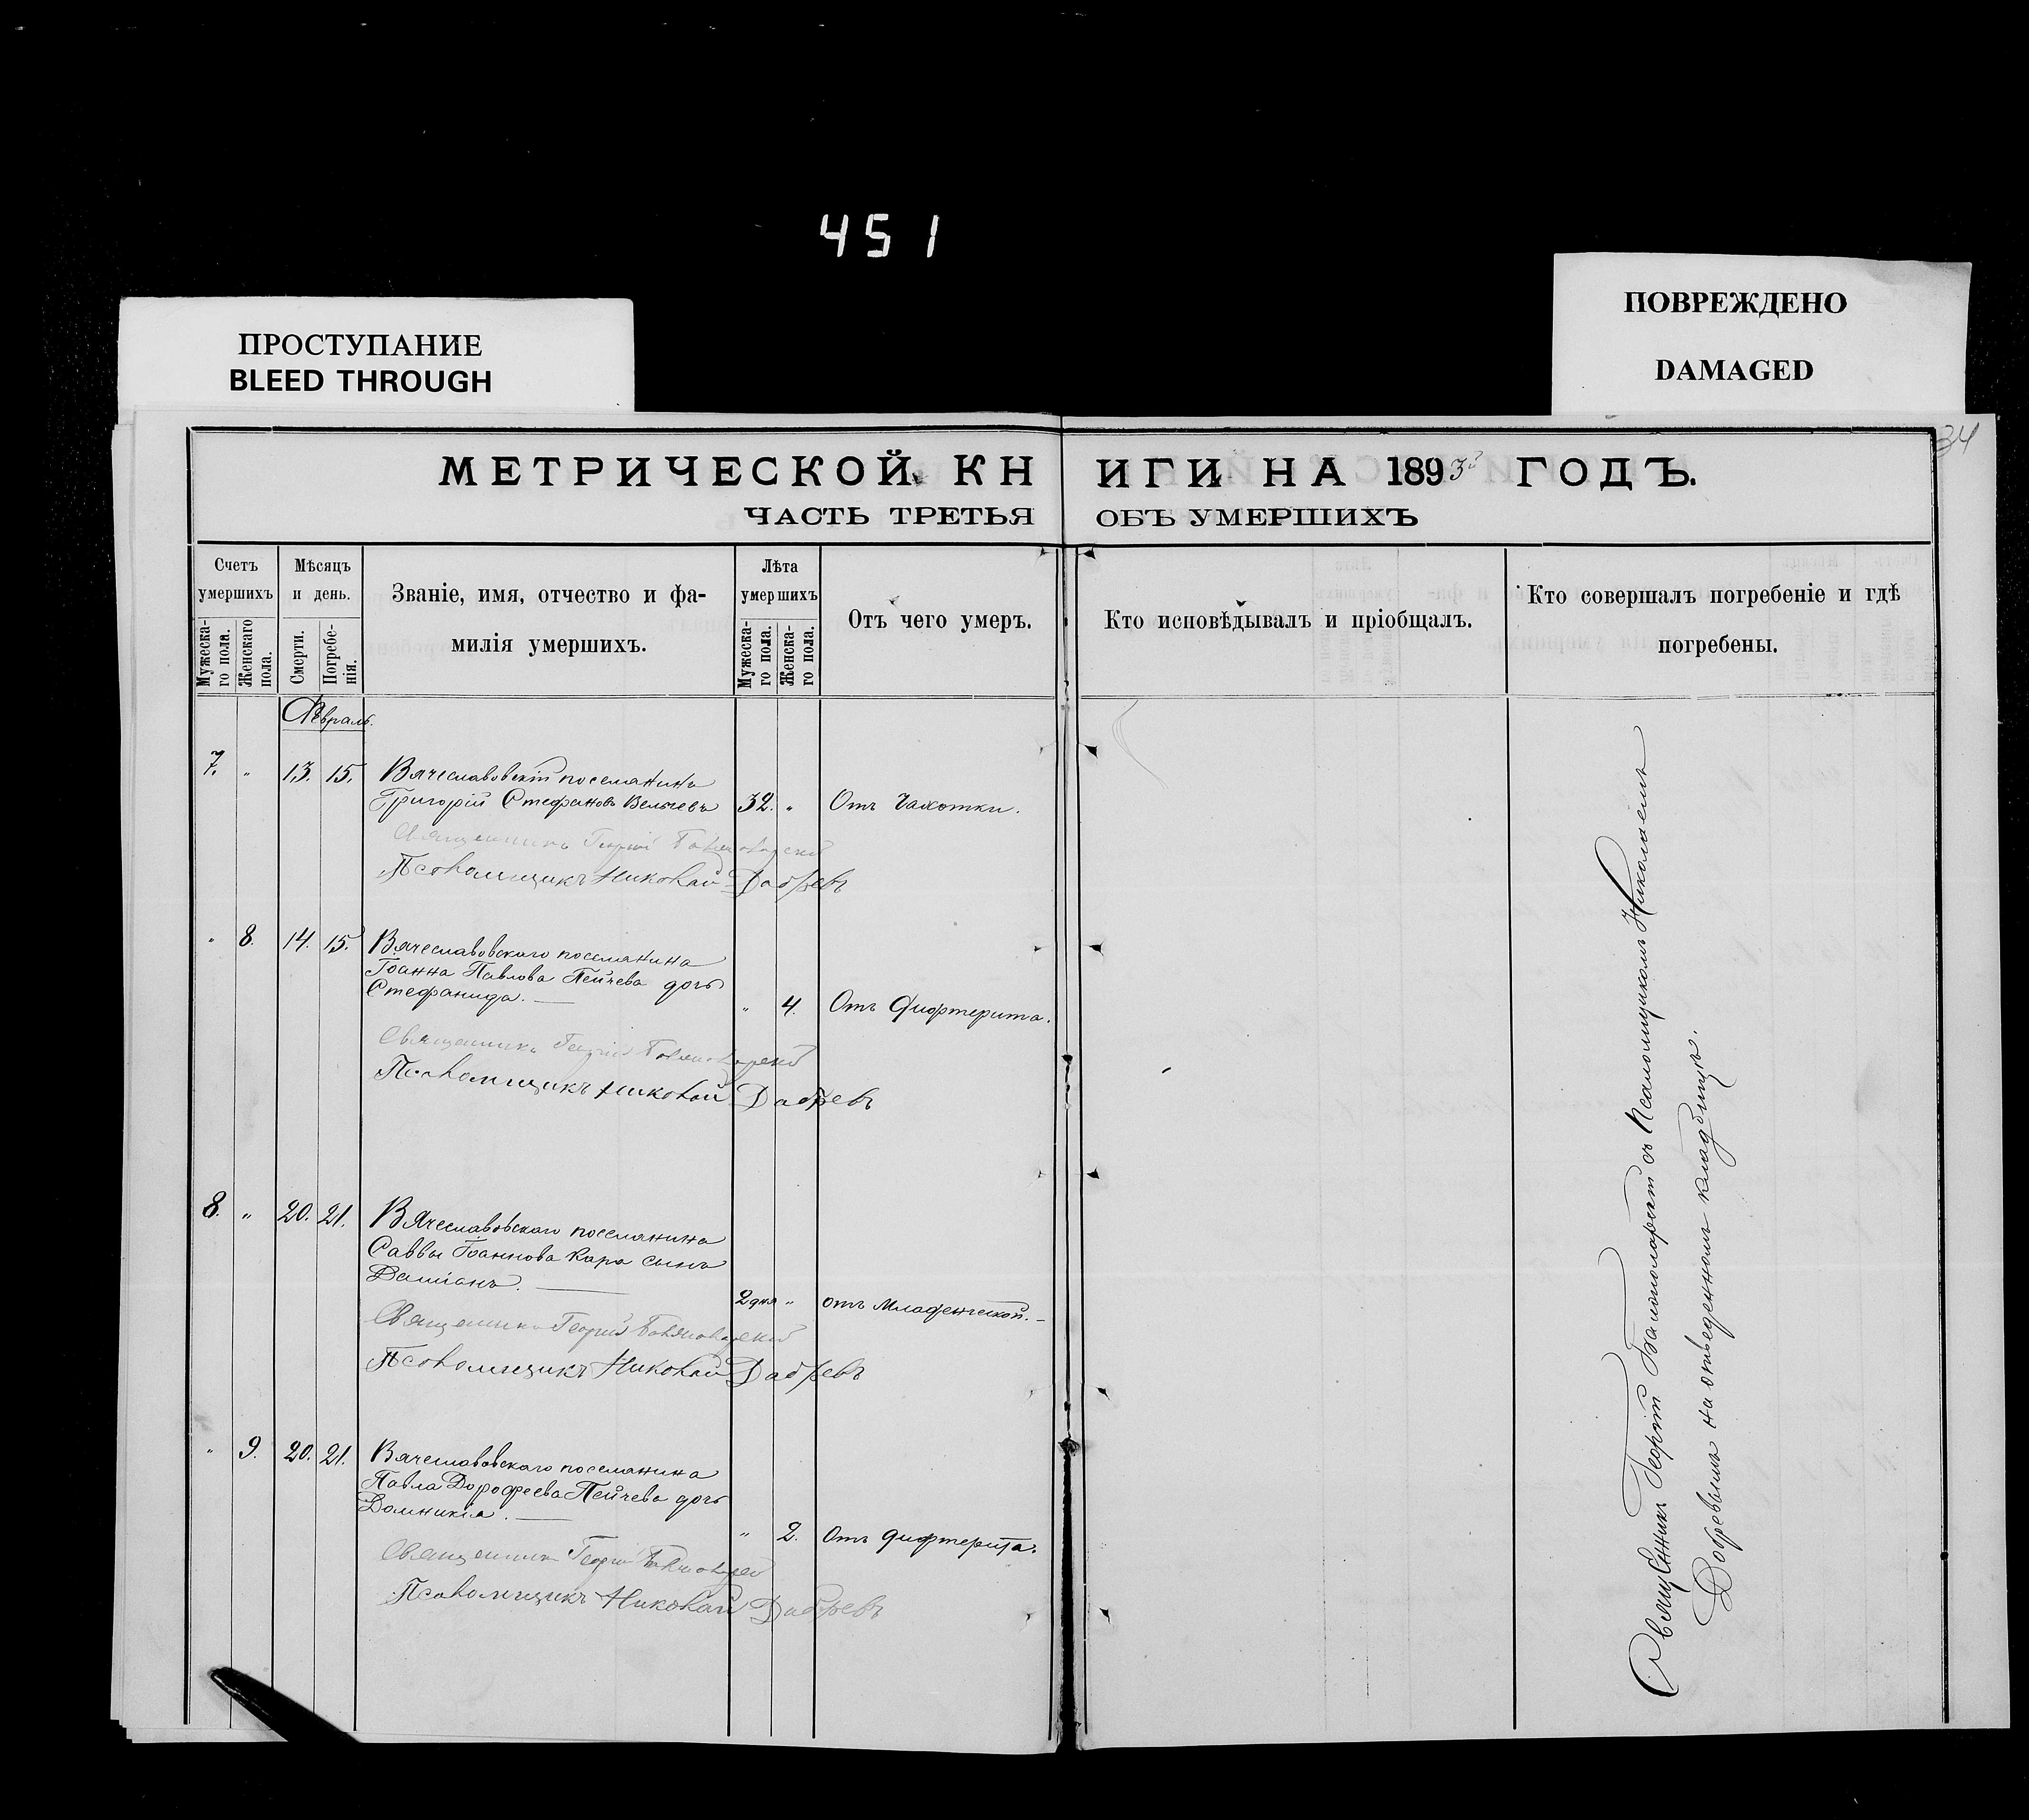 451
ПРОСТУПАНИЕ
BLEED THROUGH
ПОВРЕЖДЕНО
DAMAGED
34
МЕТРИЧЕСКОЙ КНИГИ НА 1893й ГОДЪ.
ЧАСТЬ ТРЕТЬЯ ОБЪ УМЕРШИХЪ
Счетъ умершихъ
Мужеска-го пола.
Женскаго пола.
Мѣсяцъ и день.
Смерти.
Погребе-нія.
Званіе, имя, отчество и фа-
милія умершихъ.
Лѣта умершихъ
Мужеска-го пола.
Женска-го пола.
Отъ чего умеръ.
Кто исповѣдывалъ и пріобщалъ.
Кто совершалъ погребеніе и гдѣ
погребены.
Февраль.
7. " 13. 15. Вячеславовскій поселянинъ
Григорій Стефановъ Велчевъ 32. " Отъ Чахотки.
Священникъ Георгій
Псаломщикъ Николай Добревъ
" 8. 14. 15. Вячеславовскаго поселянина
Іоанна Павлова Пейчева дочь
Стефанида. " 4. Отъ Дифтерита.
Священникъ Георгій
Псаломщикъ Николай Добревъ
8. " 20. 21. Вячеславовскаго поселянина
Саввы Іоаннова Кара сынъ
Даміанъ. 2 дня " отъ Младенческой.
Священникъ Георгій
Псаломщикъ Николай Добревъ
" 9. 20. 21. Вячеславовскаго поселянина
Павла Дорофеева Пейчева дочь
Домникія. " 2. Отъ дифтерита.
Священникъ Георгій
Псаломщикъ Николай Добревъ
Священникъ Георгій съ Псаломщикомъ Николаемъ
Добревымъ на отведенномъ кладбищѣ.